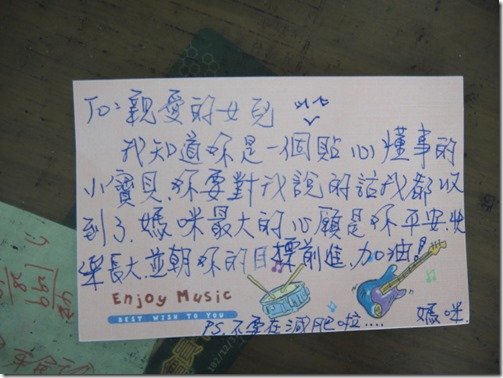 To: 親愛的女兒
我知道妳是一個貼心懂事的
小寶貝,妳要對我說的話我都收
到了,媽咪最大的心願是妳平安、快
樂長大並朝妳的目標前進,加油!
Enjoy Music
BEST WISH TO YOU
媽咪.
PS. 不要在減肥啦....